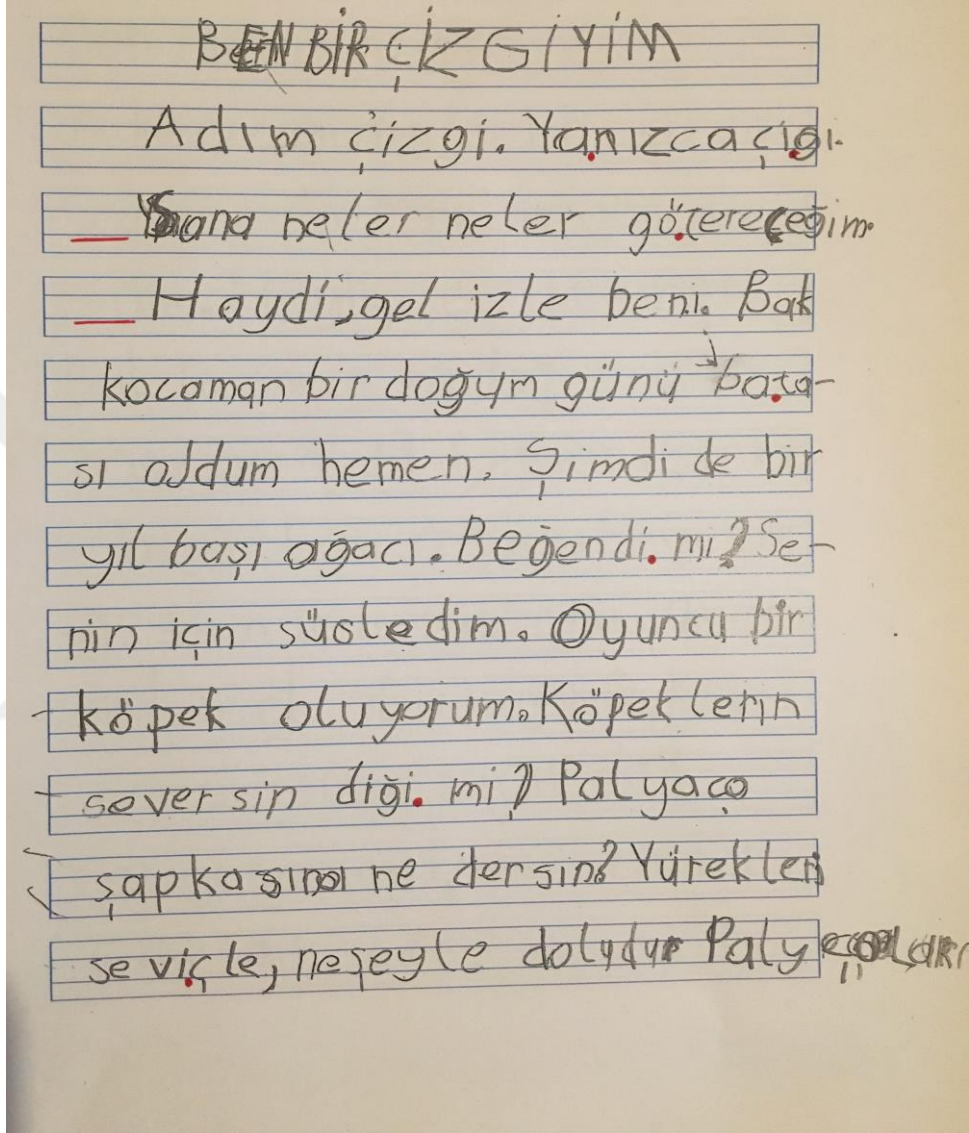 BEN BİR ÇİZGİYİM
Adım çizgi. Yanızca çigı.
Sana neler neler göterereçeğim.
Haydi, gel izle beni. Bak
kocaman bir doğum günü bata-
sı oldum hemen. Şimdi de bir
yıl başı ağacı. Beğendi mi? Se-
nin için süsledim. Oyuncu bir
köpek oluyorum. Köpeklerin
seversin diği mi? Palyaço
şapkasına ne dersin? Yürekleri
seviçle, neşeyle doludur